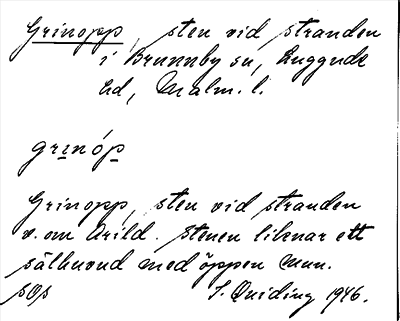 Grinopp, sten vid stranden
i Brunnby sn, Luggude
hd, Malm. l.
grɪnóp
Grinopp, sten vid stranden
v. om Arild. Stenen liknar ett
sälhuvud med öppen mun.
sOs I. Quiding 1946.